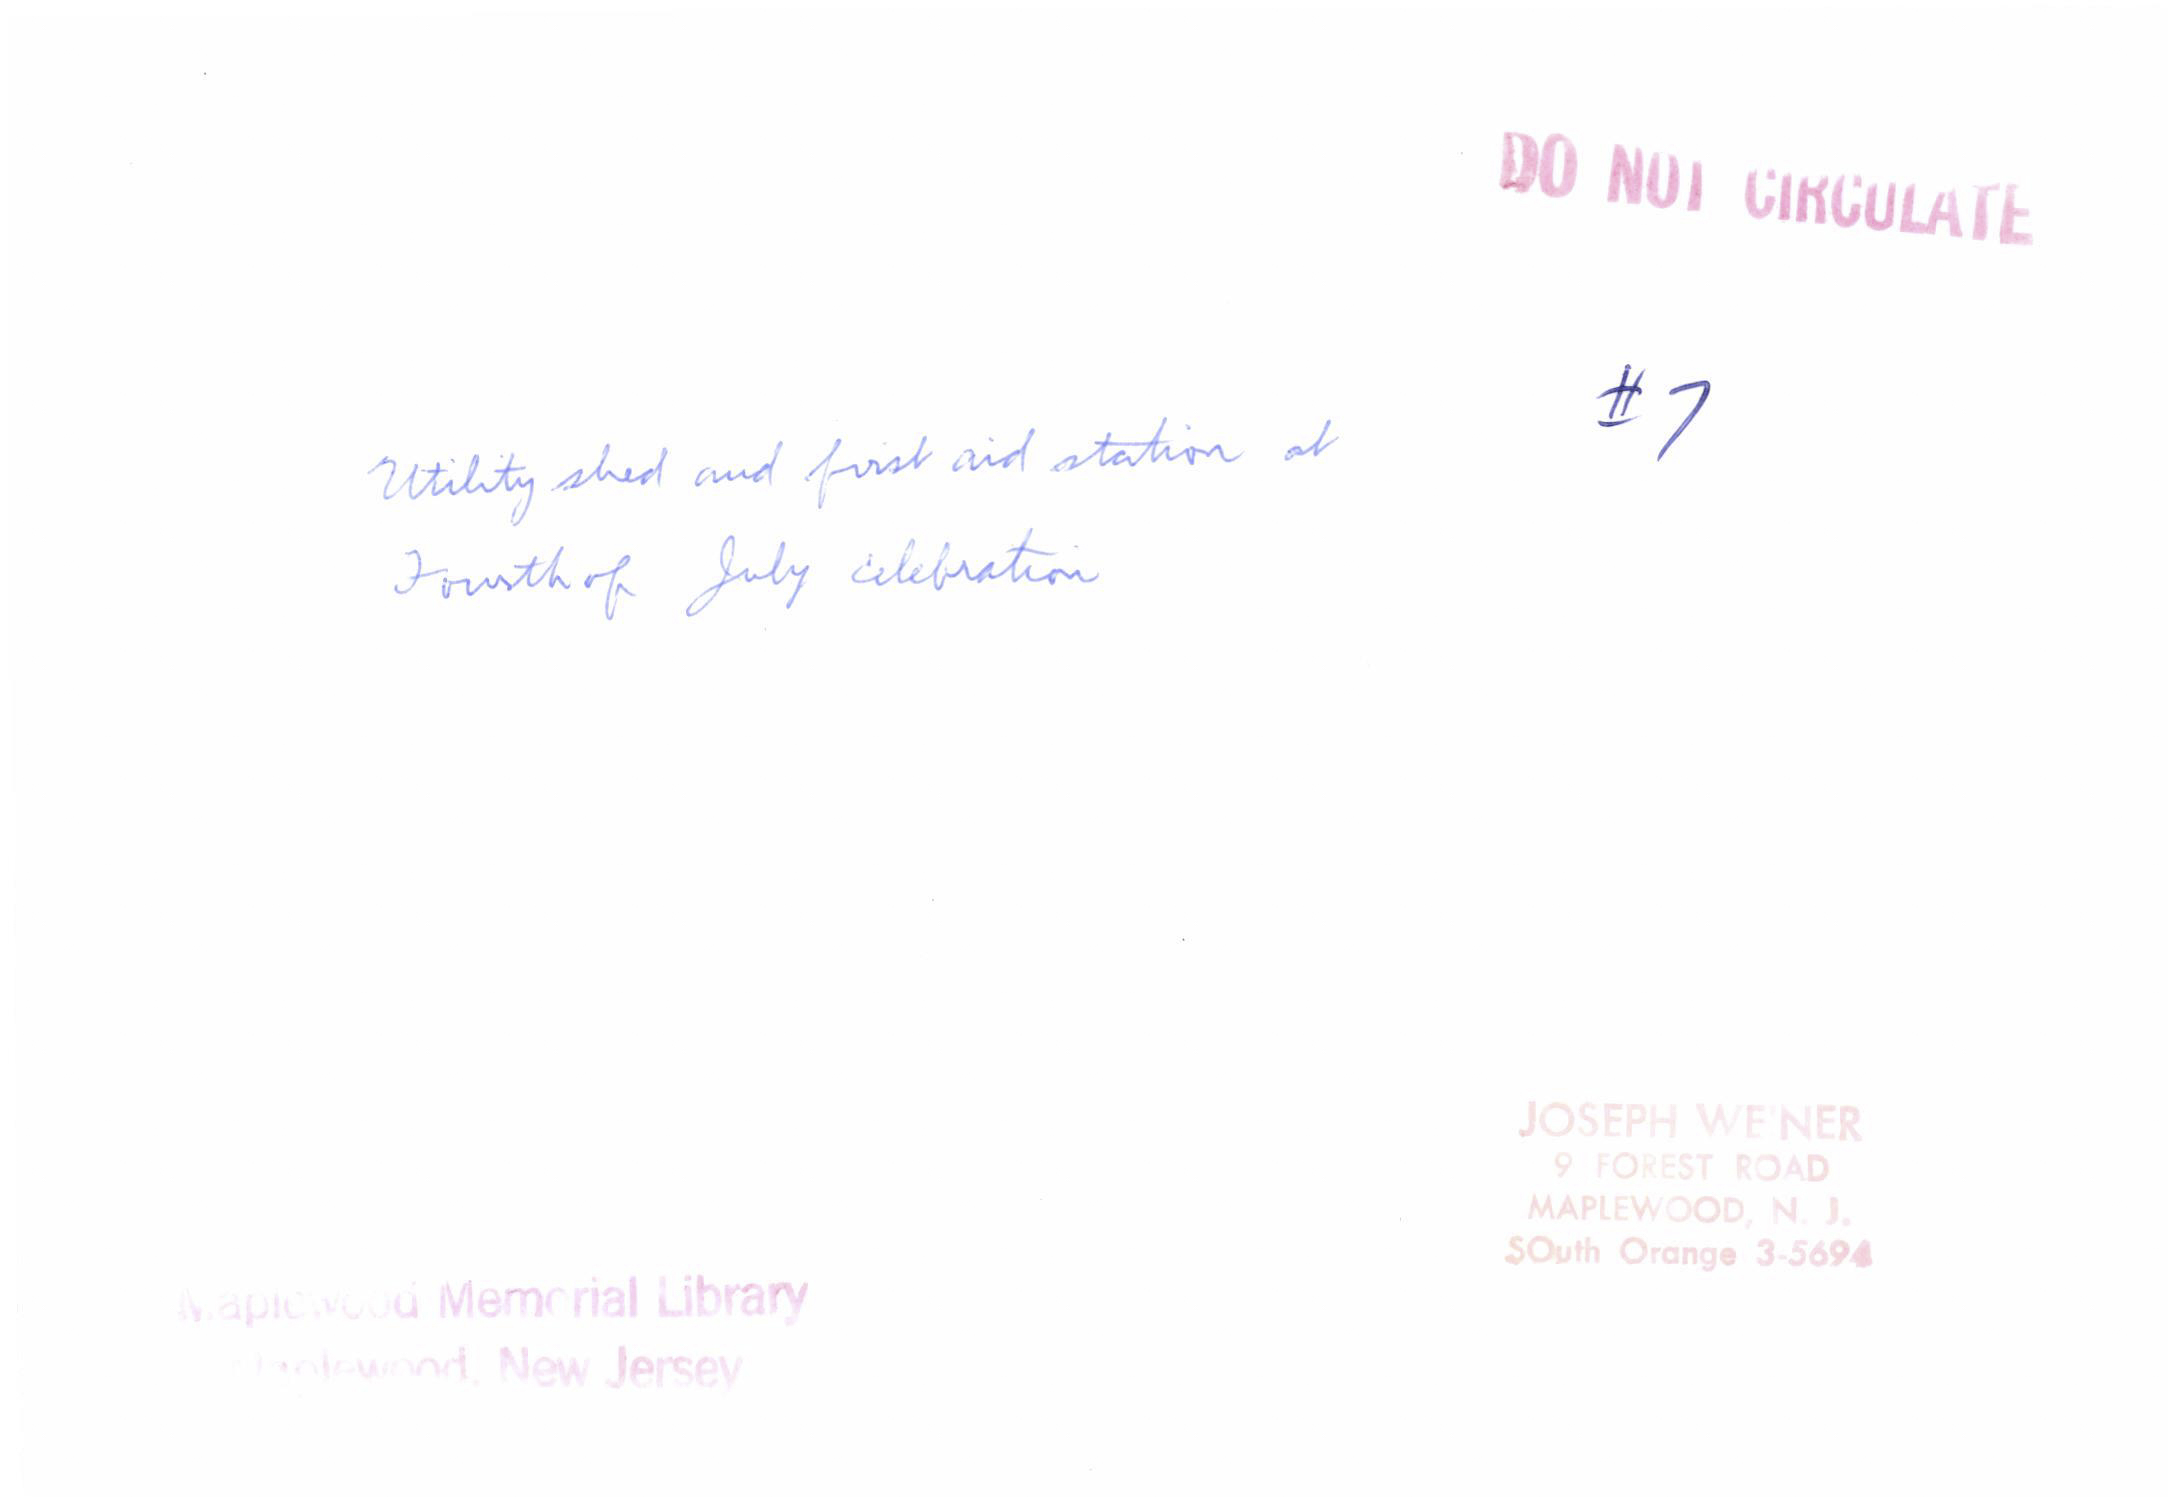 DO NOT CIRCULATE
#7
Utility shed and first aid station at
Fourth of July celebration
JOSEPH WEINER
9 FOREST ROAD
MAPLEWOOD, N. J.
SOuth Orange 3-5694
Maplewood Memorial Library
Maplewood, New Jersey